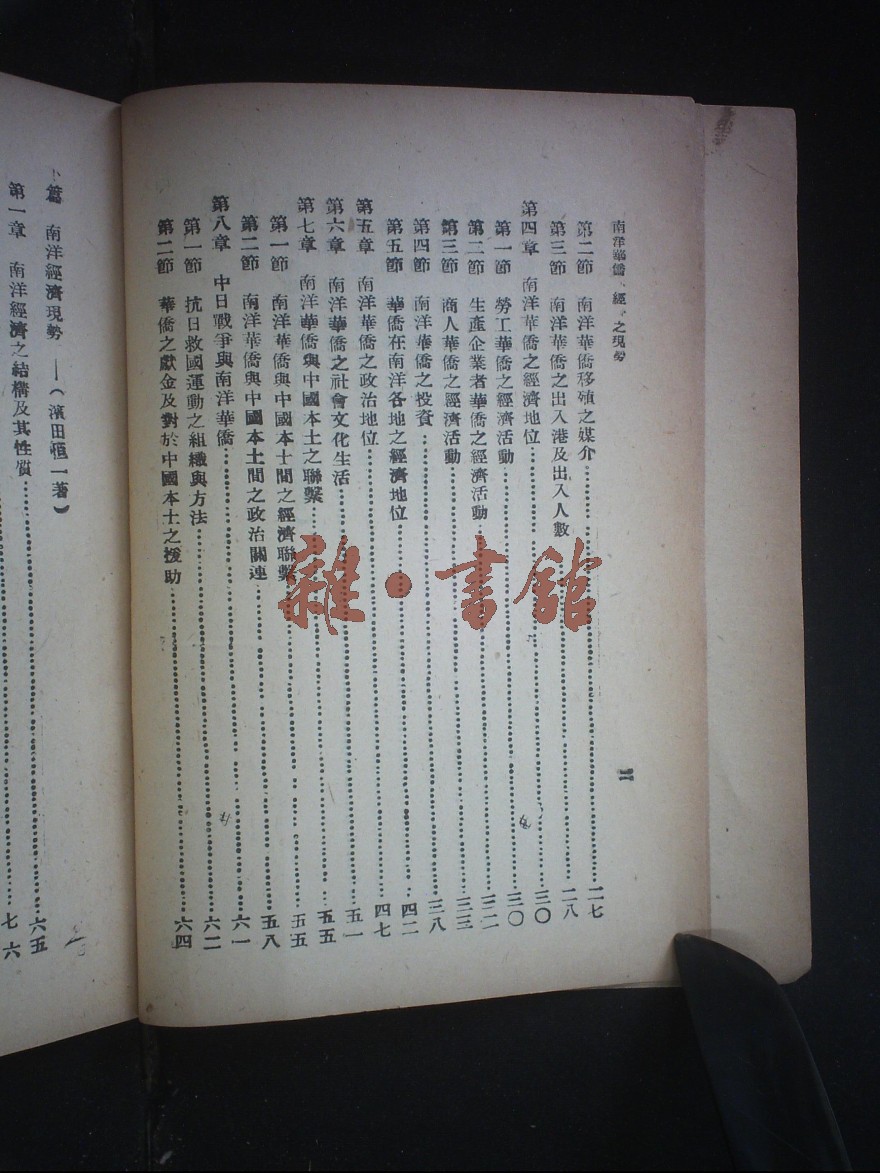 南洋華僑 經 之現勢
二
第二節 南洋華僑移殖之媒介 二七
第三節 南洋華僑之出入港及出入人數 二八
第四章 南洋華僑之經濟地位 三〇
第一節 勞工華僑之經濟活動 三〇
第二節 生產企業者華僑之經濟活動 三二
第三節 商人華僑之經濟活動 三三
第四節 南洋華僑之投資 三八
第五節 華僑在南洋各地之經濟地位 四二
第五章 南洋華僑之政治地位 四七
第六章 南洋華僑之社會文化生活 五一
第七章 南洋華僑與中國本土之聯繫 五五
第一節 南洋華僑與中國本土間之經濟聯繫 五五
第二節 南洋華僑與中國本土間之政治關連 五八
第八章 中日戰爭與南洋華僑 六一
第一節 抗日救國運動之組織與方法 六二
第二節 華僑之獻金及對於中國本土之援助 六四
篇 南洋經濟現勢 —(濱田恒一著) 六五
第一章 南洋經濟之結構及其性質 六七
雜·書館